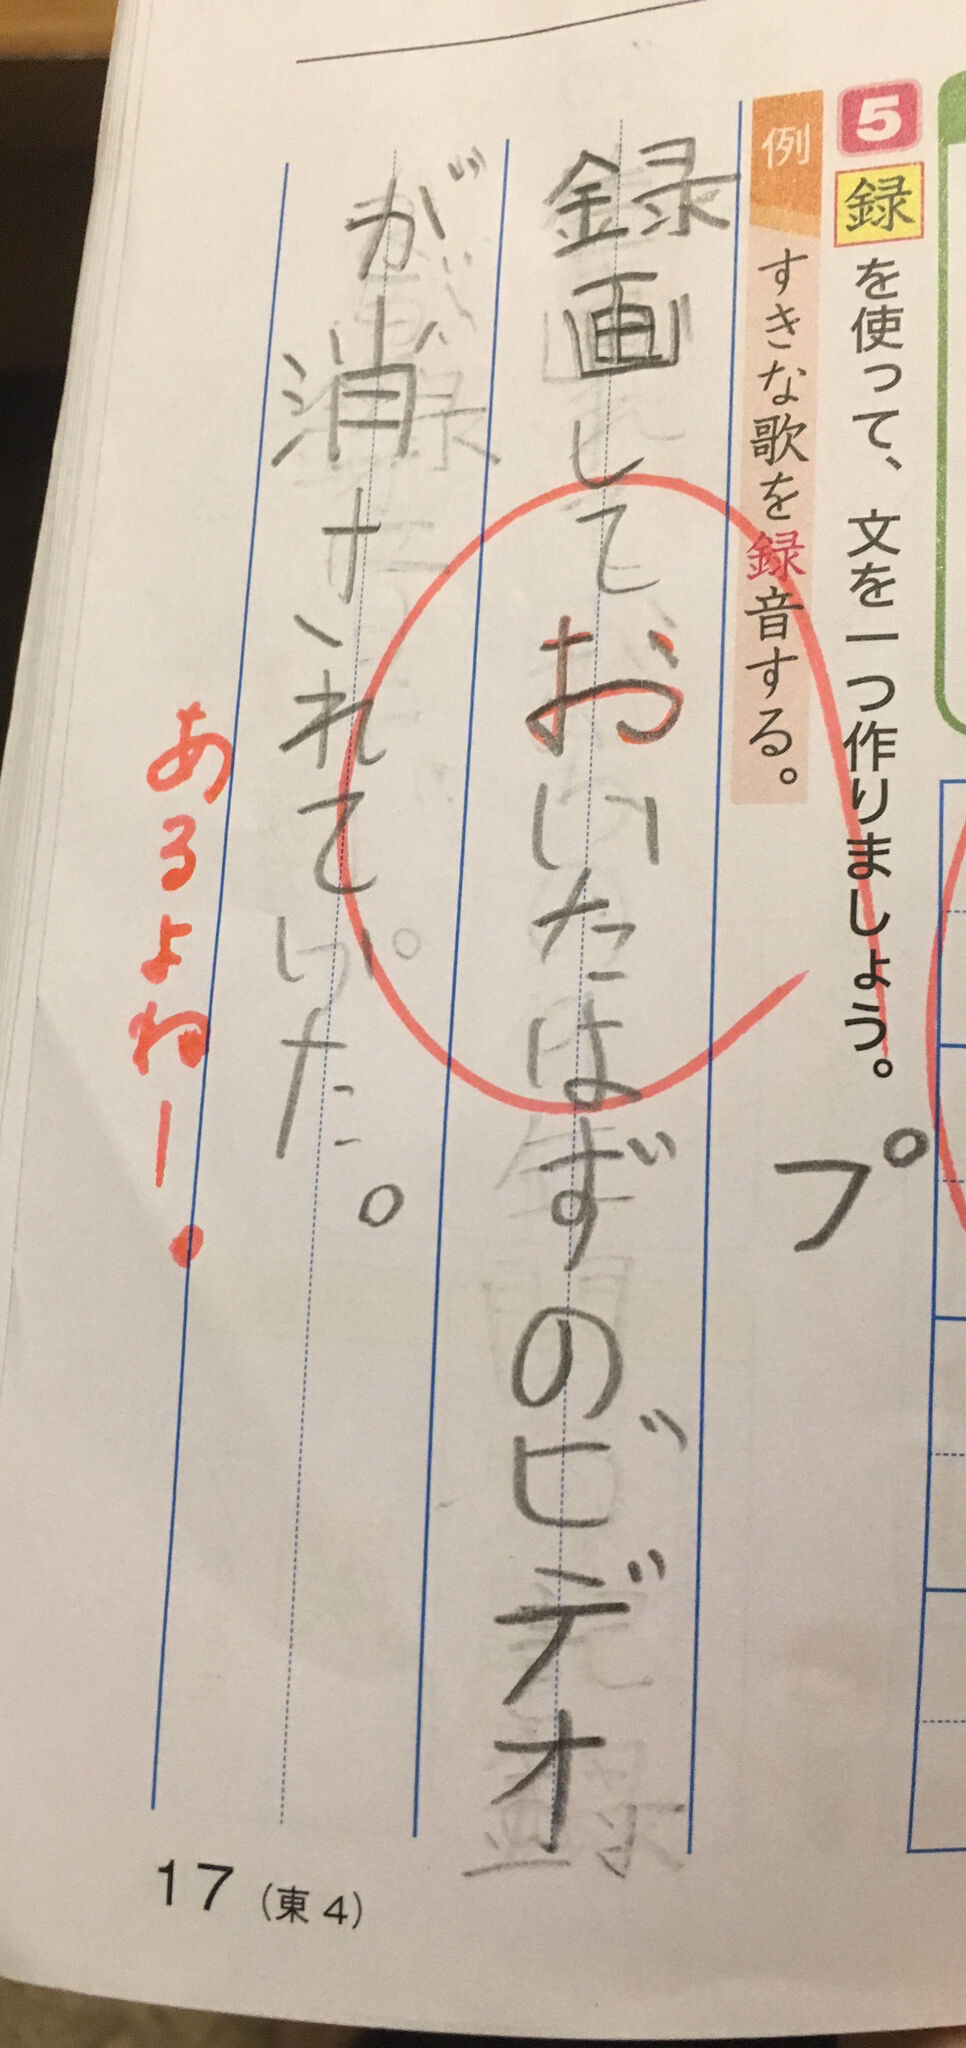 5 録を使って、文を一つ作りましょう。
プ
例 すきな歌を録音する。
録画しておいたはずのビデオ
が消されていた。
あるよねー。
17 (東4)